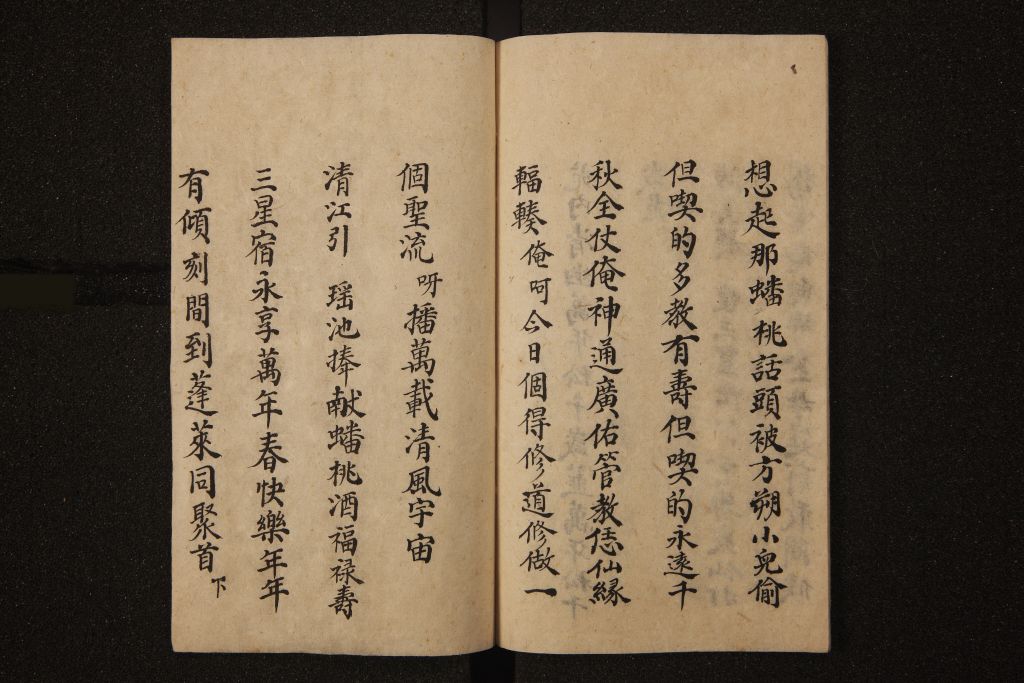 想起那蟠桃話頭被方朔小兒偷
但喫的多教有壽但喫的永遠千
秋全仗俺神通廣佑管教恁仙緣
輻輳俺呵今日個得修道修做一
個聖流呀播萬載清風宇宙
清江引 瑶池捧献蟠桃酒福禄壽
三星宿永享萬年春快樂年年
有傾刻間到蓬萊同聚首下